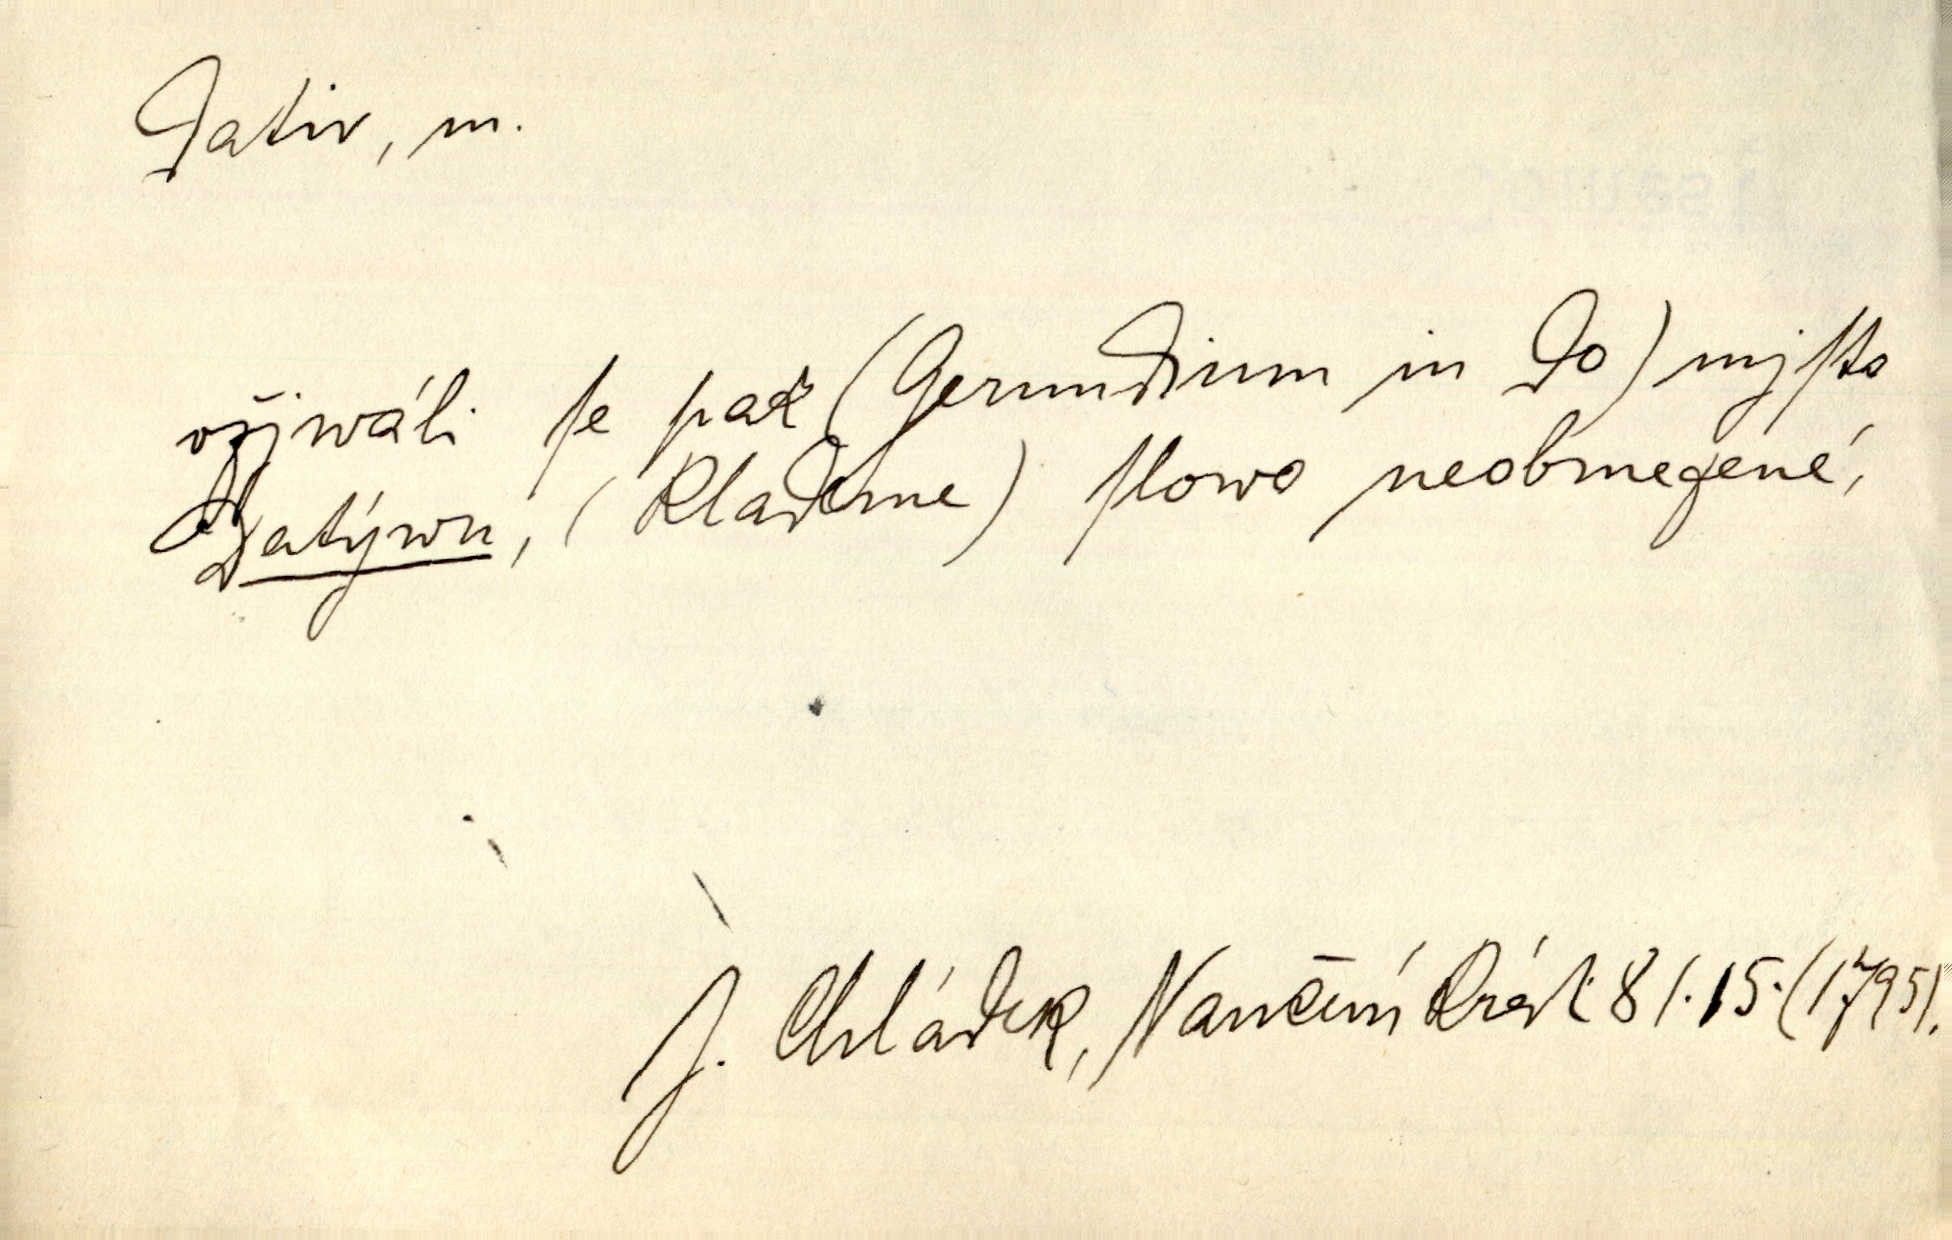 Dativ, m.
vžjwáli se pak (Gerundium in Do) mjsto
Datýwu, (klademe) slowo neobmezené,
J. Chládek, Naučení krát. 81.15.(1795).